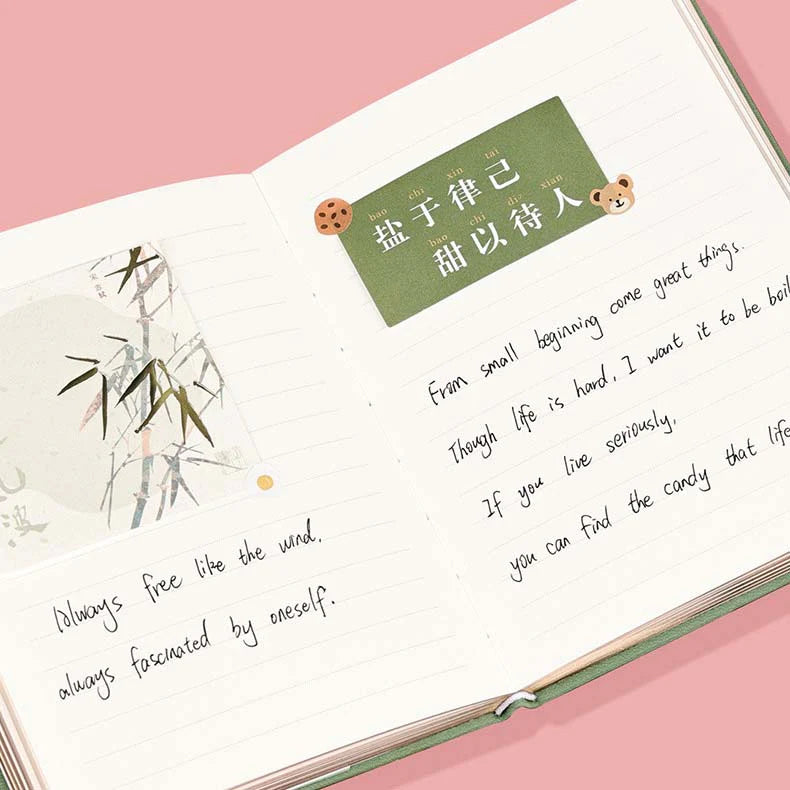 Always free like the wind,
always fascinated by oneself.
bao chi xin tai
盐于律己
bao chi di xian
甜以待人
From small beginning come great things.
Though life is hard, I want it to be boil
If you live seriously,
you can find the candy that life